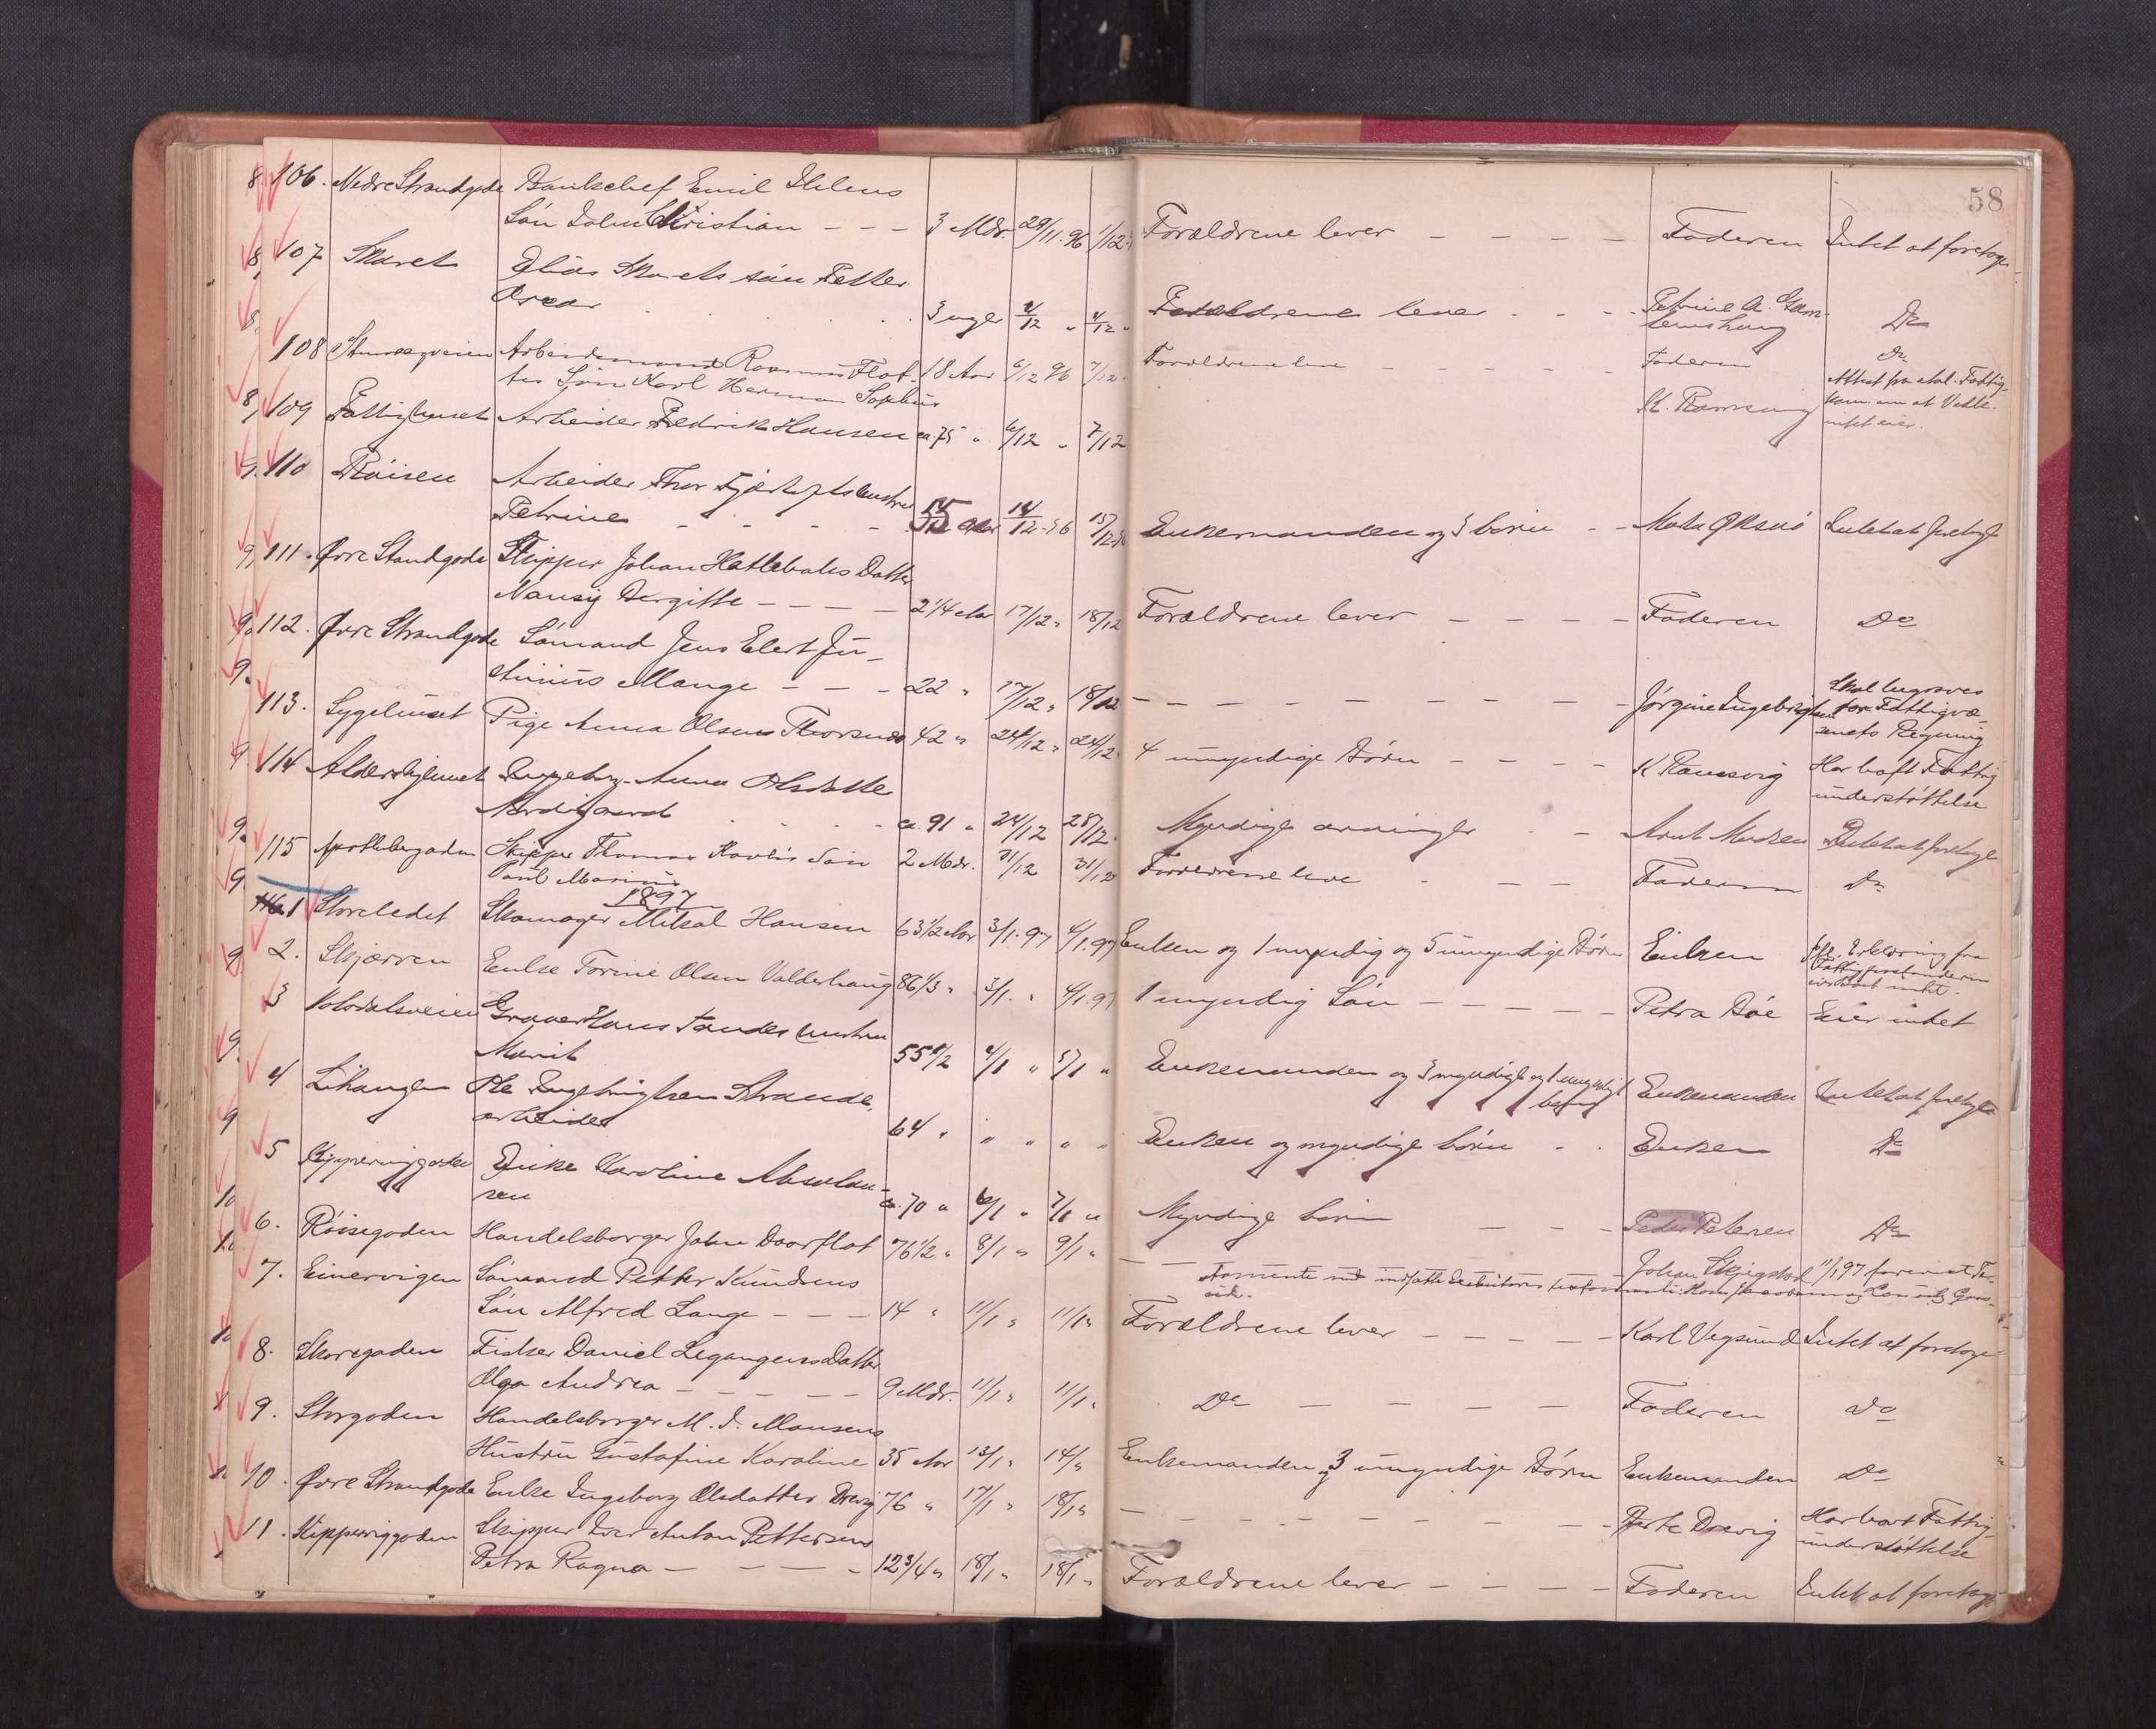 58
106. Nedre Strandgade Bankchef Emil
Søn John Christian - - - 3 Mdr. 29/11. 96 1/12 Forældrene lever - - - - Faderen Intet at foretage
107 Skaret Elias Skarets søn Petter
Oscar 3 uger 4/12 " 4/12 " Forældrene lever - - Petrine A. Do
108 Arbeidsmand Rasmus Flot- 18 Aar 6/12 96 7/12 Forældrene leve - - - - Faderen Do
tes Søn Karl Herman Sophus
109 Fattighuset Arbeider Fredrik Hansen ca. 75 " 6/12 " 7/12 K. Ramsvig Attest fra Aal. Fattig-
kom. om at Vedk.
intet eier.
110 Røisen Arbeider Thor hustru
Petrine - - - - 55 Aar 14/12-96 15/12 Enkemanden og 3 børn - - Intet at foretage
111. Øvre Standgade Skipper Johan Hatlebaks Datter
Nansy Bergitte - - - - 2 1/4 Aar 17/12 " 18/12 Forældrene lever - - - - Faderen Do
112. Øvre Strandgade Sømand Jens Elert Ju-
stinus Mange - - - 22 " 17/12 " 18/12 - - - - - - - Jørgine Ingebrigtsen Skal begraves
for Fattigvæ-
snets Regning
113. Sygehuset Pige Anna Olsens 42 " 24/12 " 24/12 " 4 umyndige Børn - - - - K Ramsvig Har havt Fattig
understøttelse
114 Aldershjemmet Ingebrg. Anna Olsdatter
ca. 91 " 24/12 28/12. Myndige arvinger - - Arnt Madsen Intet at foretage
115 Apothekergaden Skipper Thomas Søn 2 Mdr. 31/12 31/12 Forældrene leve - - - Faderen Do
Marinus
1897
1 Storeledet Skomager Mikal Hansen 63 1/2 Aar 3/1. 97 4/1. 97 Enken og 1 myndig og 5 umyndige Børn Enken Erklæring fra
Fattigforstanderen
intet.
2. Skjærven Enke Torine Olsen Valderhaug 86 1/3 " 3/1. " 4/1. 97 1 myndig Søn - - - - Petra Bøe Eier intet
3 Volsdalsveien Graver Hans hustru
Marit 55 1/2 4/1 " 5/1 " Enkemanden og 3 myndige og 1 umyndigt
barn Enkemanden Intet at foretage
4 Lihaugen Ole Ingebrigtsen Strande,
arbeider 64 " " " " " Enken og myndige børn - - Enken Do
5 Kipperviggaden Enke Karoline Absalon-
sen ca. 70 " 6/1 " 7/1 " Myndige børn - - - Peder Petersen Do
6. Røisegaden Handelsborger John Daarflat 76 1/2 " 8/1 " 9/1 " - - Johan 11/1 97 forevist Te-
stamente
7. Einervigen Sømand Petter Knudsens
Søn Alfred Lange - - - 14 " 11/1 " 11/1 " Forældrene lever - - - - - Karl Vegsund Intet at foretage
8. Skaregaden Fisker Daniel Legangens Datter
Olga Andrea - - - - - 9 Mdr. 11/1 " 11/1 " Do - - - - - Faderen Do
9. Storgaden Handelsborger M. I. Mansens
Hustru Gustafine Karoline 35 Aar 13/1 " 14/1 " Enkemanden og 3 umyndige Børn Enkemanden Do
10. Øvre Strandgade Enke Ingeborg Olsdatter Drevig 76 " 17/1 " 18/1 " - - - - - - - - Berte Drevig Har havt Fattig-
understøttelse
11. Kipperviggaden Skipper Anton Pettersens
Petra Ragna - - - - 12 3/4 " 18/1 " 18/1 " Forældrene lever - - - - Faderen Intet at foretage